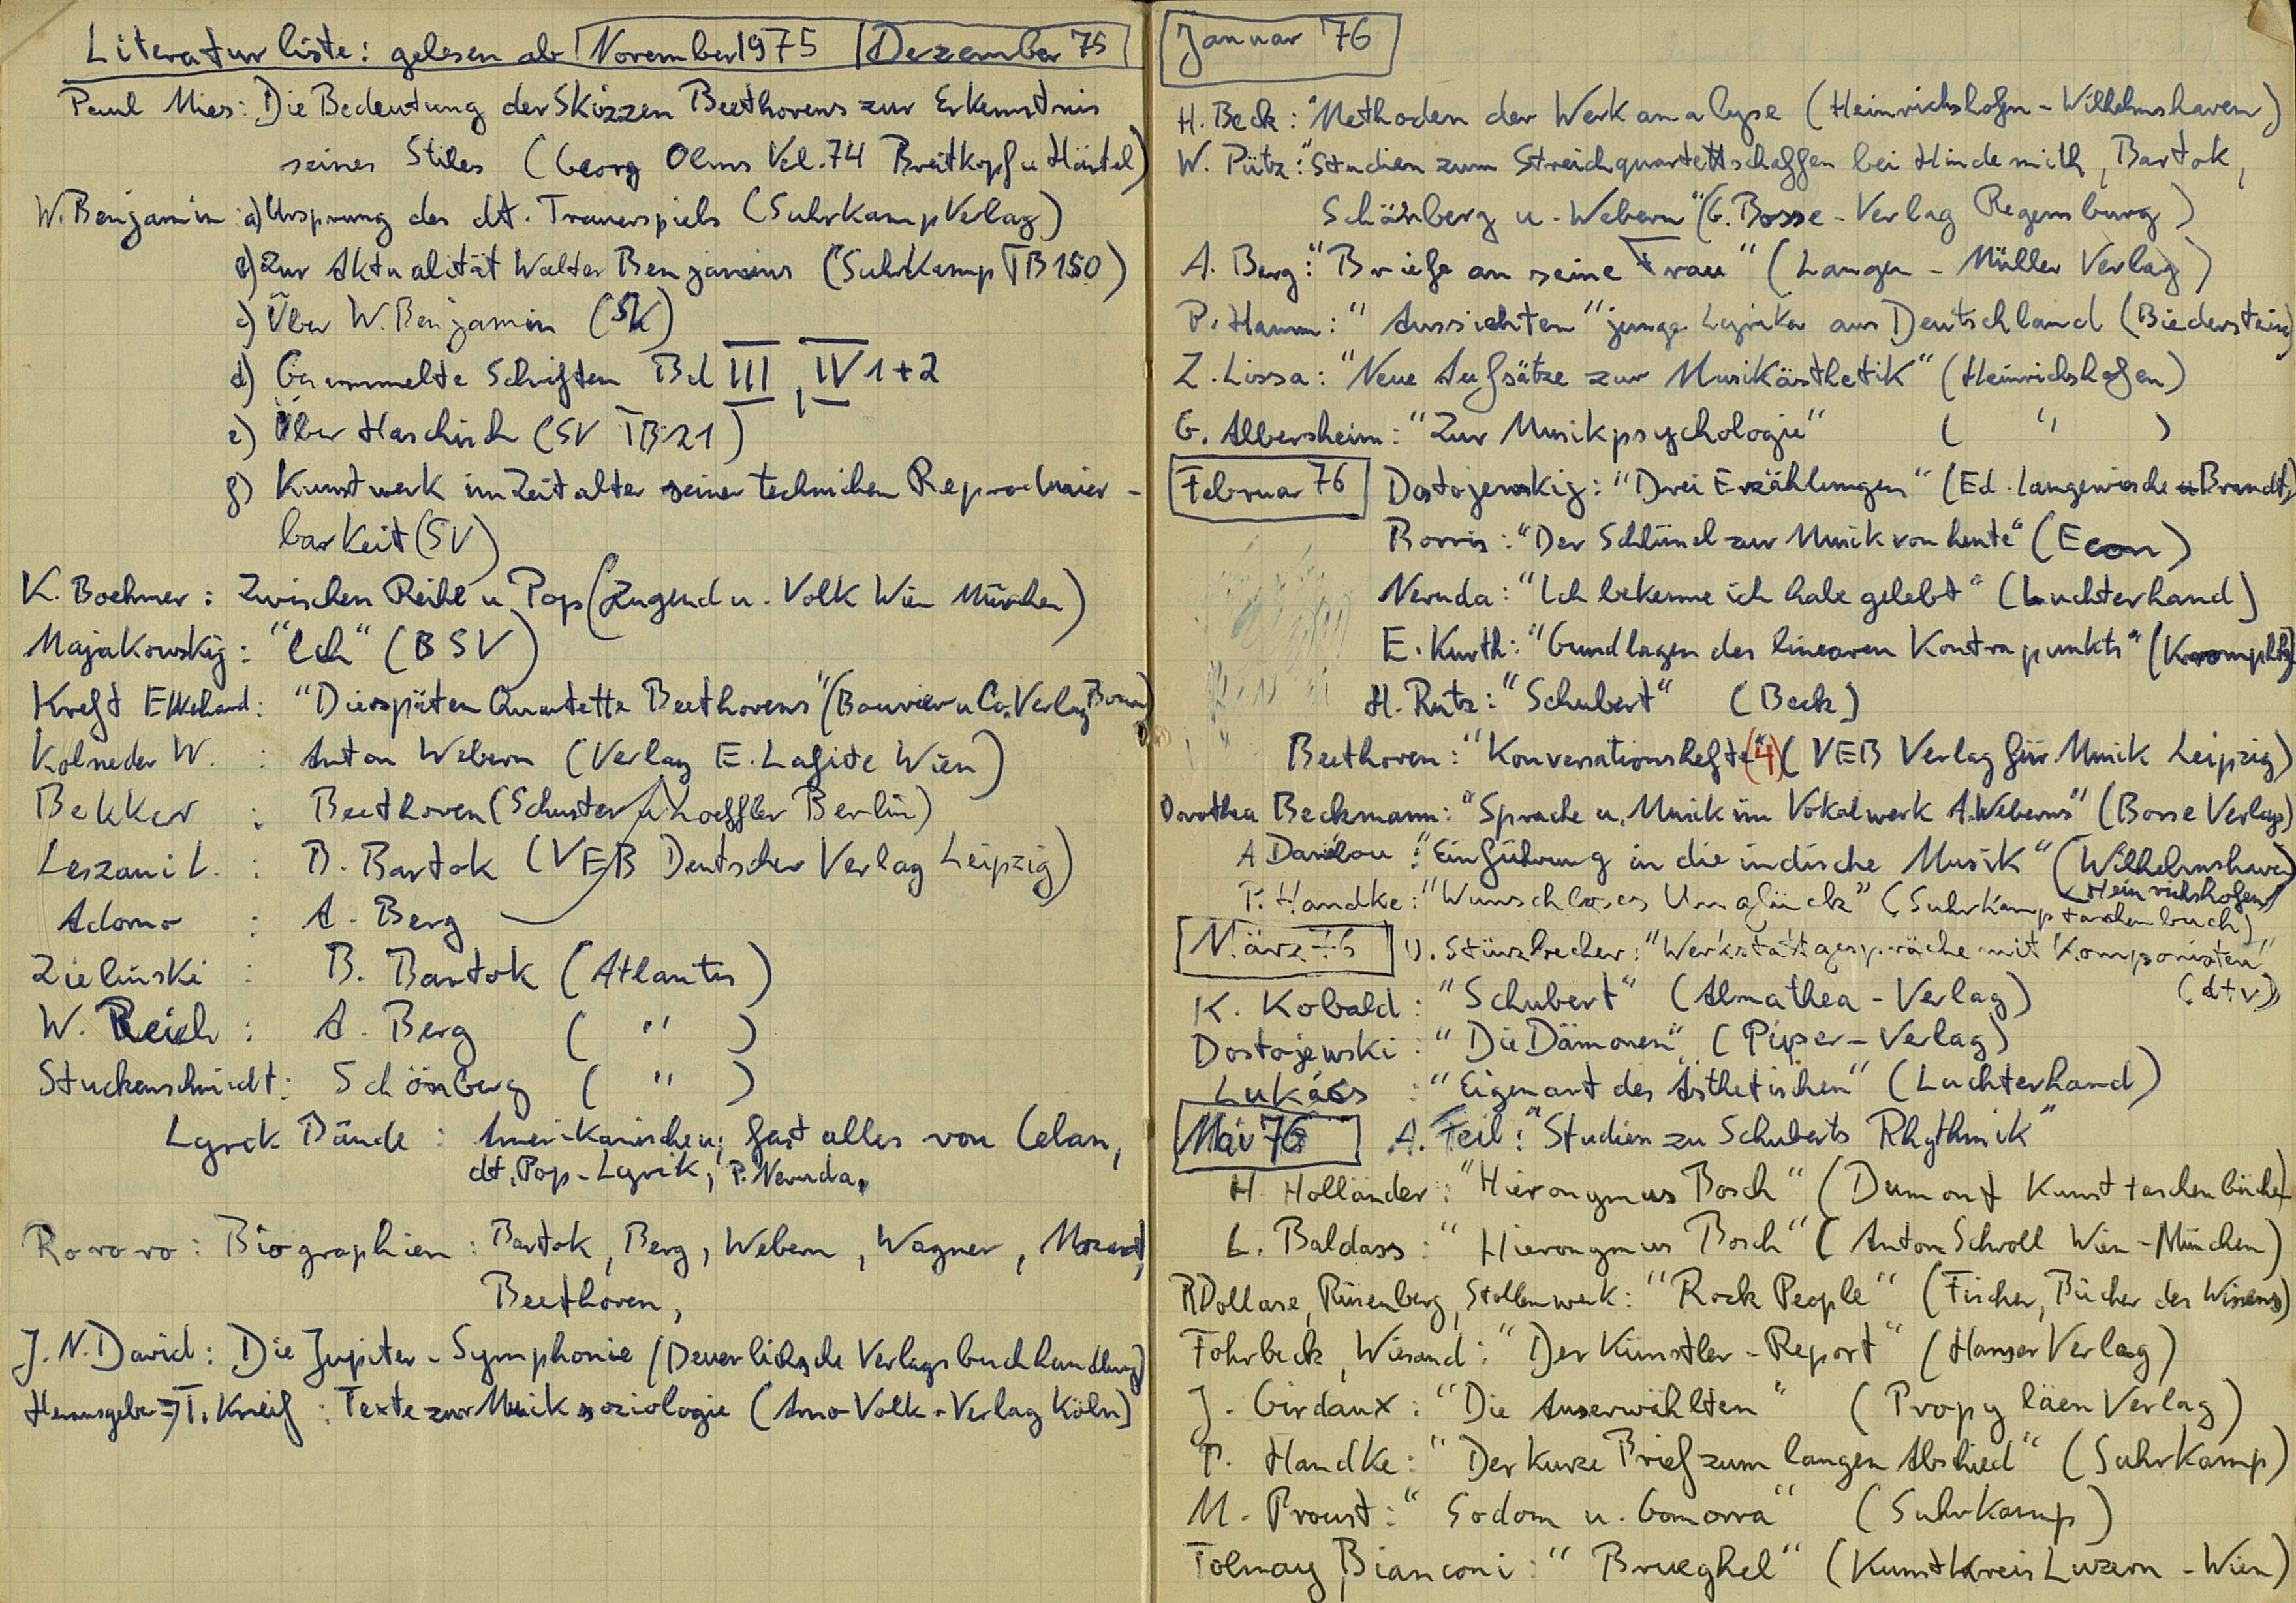 Literaturliste: gelesen ab November 1975 Dezember 75
Paul Mies: Die Bedeutung der Skizzen Beethovens zur Erkenntnis
seines Stiles (Georg Olms Vel. 74 Breitkopf u Härtel)
W. Benjamin: a) Ursprung des dt. Trauerspiels (Suhrkamp Verlag)
b) Zur Aktualität Walter Benjamins (Suhrkamp TB 150)
c) Über W. Benjamin (SK)
d) Gesammelte Schriften Bd III, IV 1+2
e) Über Haschisch (SV TB 21)
f) Kunstwerk im Zeitalter seiner technischen Reproduzier-
barkeit (SV)
K. Boehmer: Zwischen Reihe u Pop (Jugend u. Volk Wien München)
Majakowskij: "Ich" (BSV)
Kreft Ekkehard: "Die späten Quartette Beethovens" (Bouvier u Co. Verlag Bonn)
Kolneder W. : Anton Webern (Verlag E. Lafite Wien)
Bekker : Beethoven (Schuster u Loeffler Berlin)
Leszani L. : B. Bartok (VEB Deutscher Verlag Leipzig)
Adorno : A. Berg
Zielinski : B. Bartok (Atlantis)
W. Reich : A. Berg ( " )
Stuckenschmidt: Schönberg ( " )
Lyrik Bände : Amerikanischen; fast alles von Celan,
dt. Pop-Lyrik; P. Neruda,
Rororo: Biographien: Bartok, Berg, Webern, Wagner, Mozart,
Beethoven,
J. N. David: Die Jupiter-Symphonie (Deuerlichsche Verlagsbuchhandlung)
Herausgeber → T. Kneif : Texte zur Musiksoziologie (Arno Volk-Verlag Köln)
Januar 76
H. Beck: "Methoden der Werkanalyse (Heinrichshofen-Wilhelmshaven)
W. Pütz: "Studien zum Streichquartettschaffen bei Hindemith, Bartok,
Schönberg u. Webern" (G. Bosse-Verlag Regensburg)
A. Berg: "Briefe an seine Frau" (Langen-Müller Verlag)
P. Hamm: "Aussichten" junge Lyriker aus Deutschland (Biederstein)
Z. Lissa: "Neue Aufsätze zur Musikästhetik" (Heinrichshofen)
G. Albersheim: "Zur Musikpsychologie" ( " )
Februar 76 Dostojewskij: "Drei Erzählungen" (Ed. Langewiesche u Brandt)
Borris: "Der Schlüssel zur Musik von heute" (Econ)
Neruda: "Ich bekenne ich habe gelebt" (Luchterhand)
E. Kurth: "Grundlagen des linearen Kontrapunkts" (Krompholz)
H. Rutz: "Schubert" (Beck)
Beethoven: "Konversationshefte" (4) (VEB Verlag für Musik Leipzig)
Dorothea Beckmann: "Sprache u. Musik im Vokalwerk A. Weberns" (Bosse Verlag)
A Daniélou: "Einführung in die indische Musik" (Wilhelmshaven
Heinrichshofen)
P. Handke: "Wunschloses Unglück" (Suhrkamp taschenbuch)
März 76 U. Stürzbecher: "Werkstattgespräche mit Komponisten"
(dtv)
K. Kobald: "Schubert" (Almathea-Verlag)
Dostojewski: "Die Dämonen" (Piper-Verlag)
Lukács : "Eigenart des Ästhetischen" (Luchterhand)
Mai 76 A. Feil: "Studien zu Schuberts Rhythmik"
H Holländer: "Hieronymus Bosch" (Dumont Kunsttaschenbücher)
L. Baldass: "Hieronymus Bosch" (Anton Schroll Wien-München)
R Dollase, Rüsenberg, Stollenwerk: "Rock People" (Fischer, Bücher des Wissens)
Fohrbeck, Wiesand: "Der Künstler-Report" (Hanser Verlag)
J. Girdaux: "Die Auserwählten" (Propyläen Verlag)
P. Handke: "Der kurze Brief zum langen Abschied" (Suhrkamp)
M. Proust: "Sodom u. Gomorra" (Suhrkamp)
Tolnay, Bianconi: "Brueghel" (Kunstkreis Luzern-Wien)